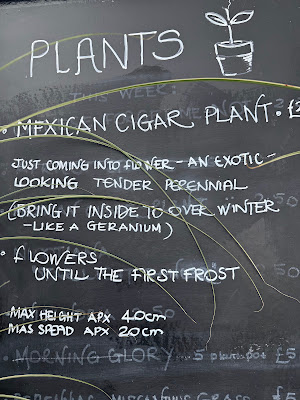 PLANTS
THIS WEEK:
• MEXICAN CIGAR PLANT • £
JUST COMING INTO FLOWER - AN EXOTIC -
LOOKING TENDER PERENNIAL
(BRING IT INSIDE TO OVER WINTER
- LIKE A GERANIUM)
• FLOWERS
UNTIL THE FIRST FROST
MAX HEIGHT APX 40cm
MAS SPEAD APX 20cm
• MORNING GLORY - 5 plants pot £5
MISCANTHUS GRASS £5